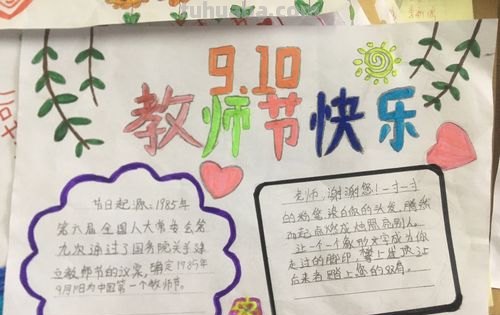 ruhuaka.com
9.10
教师节快乐
节日起源:1985年
第六届全国人大常委会第
九次通过了国务院关于建
立教师节的议案,确定1985年
9月1日为中国第一个教师节。
老师,谢谢您!一寸一寸
的粉笔,染白你的头发,腾然
点燃成烛照亮别人。
让一个一个方形文字成为你
走过的脚印,让
后来者踏上您的双肩。